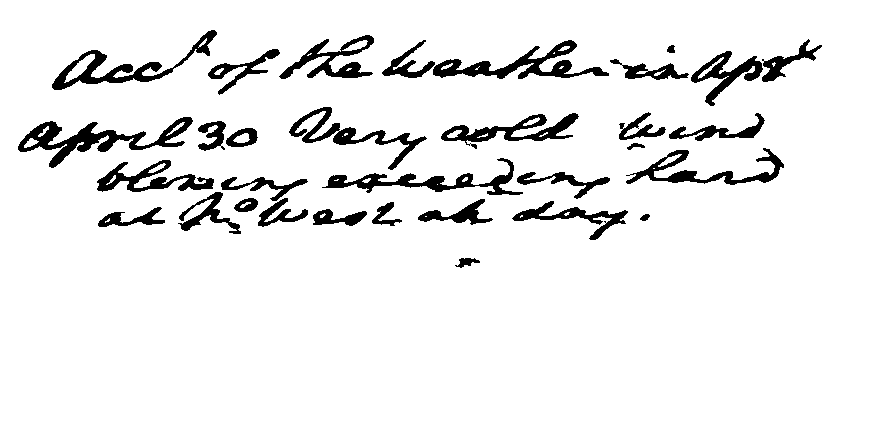 Acct of the Weather in Aprl
April 30 Very cold wind
blowing exceeding hard
at No West all day.